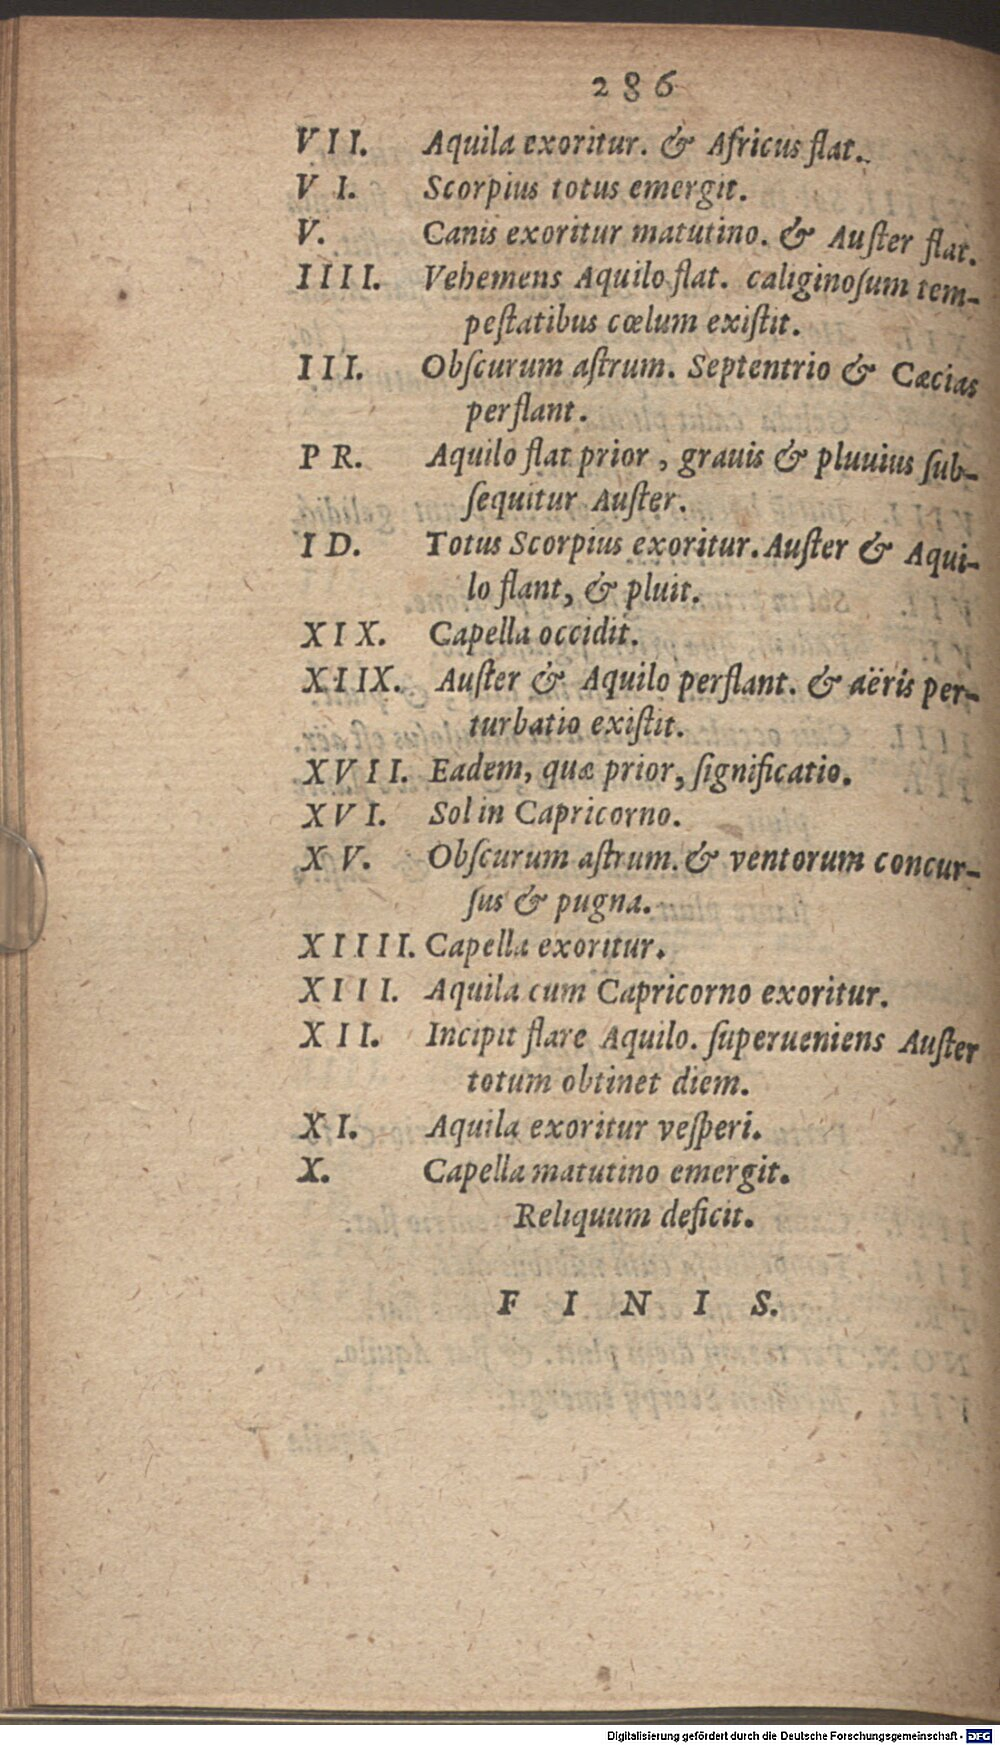 286
VII. Aquila exoritur. & Africus flat.
VI. Scorpius totus emergit.
V. Canis exoritur matutino. & Auſter flat.
IIII. Vehemens Aquilo flat. caliginoſum tem-
peſtatibus cœlum exiſtit.
III. Obſcurum aſtrum. Septentrio & Cæcias
perflant.
PR. Aquilo flat prior, grauis & pluuius ſub-
ſequitur Auſter.
ID. Totus Scorpius exoritur. Auſter & Aqui-
lo flant, & pluit.
XIX. Capella occidit.
XIIX. Auſter & Aquilo perflant. & aëris per-
turbatio exiſtit.
XVII. Eadem, quæ prior, ſignificatio.
XVI. Sol in Capricorno.
XV. Obſcurum aſtrum. & ventorum concur-
ſus & pugna.
XIIII. Capella exoritur.
XIII. Aquila cum Capricorno exoritur.
XII. Incipit flare Aquilo. ſuperueniens Auſter
totum obtinet diem.
XI. Aquila exoritur veſperi.
X. Capella matutino emergit.
Reliquum deficit.
FINIS.
Digitalisierung gefördert durch die Deutsche Forschungsgemeinschaft - DFG